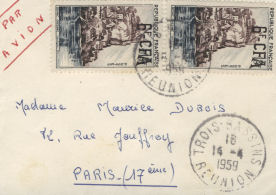 PAR
AVION
REPUBLIQUE FRANÇAISE
8F. CFA
REPUBLIQUE FRANÇAISE
8F. CFA
REUNION
Madame Maurice Dubois
12, Rue Jouffroy
PARIS (17ème)
TROIS-BASSINS
18
14-4
1959
REUNION